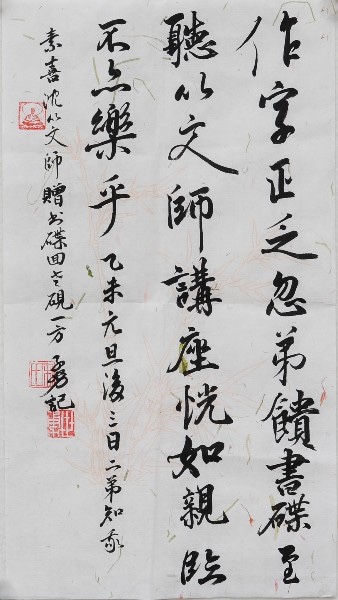 作字正乏忽弟饋書碟至
聽以文師講座恍如親臨
不亦樂乎 乙未元旦後三日二弟知求
素喜沈以文師贈書碟回老硯一方 記